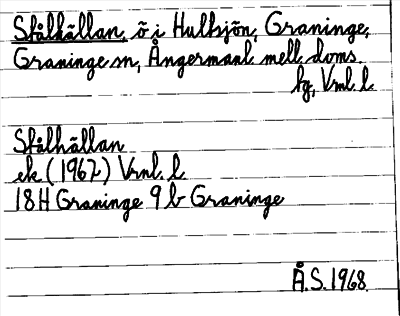 Stålhällan, ö i Hultsjön, Graninge,
Graninge sn, Ångermanl. mell. doms.
hg, Vrnl. l.
Stålhällan
ek (1967) Vrnl. l.
18H Graninge 9 b Graninge
Å.S. 1968.